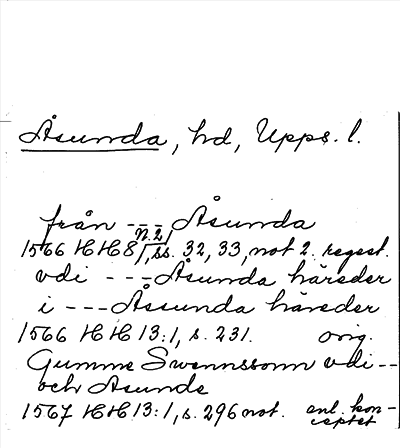 Åsunda, hd, Upps. l.
från --- Åsunda
1566 HH 8 n. 2, ss. 32, 33, not 2. regest.
vdi --- Åsunda häreder
i --- Åssunda häreder
1566 HH 13:1, s. 231. orig.
Gumme Swennssonn vdi --
och Asunde
1567 HH 13:1, s. 296 not. enl. kon-
ceptet